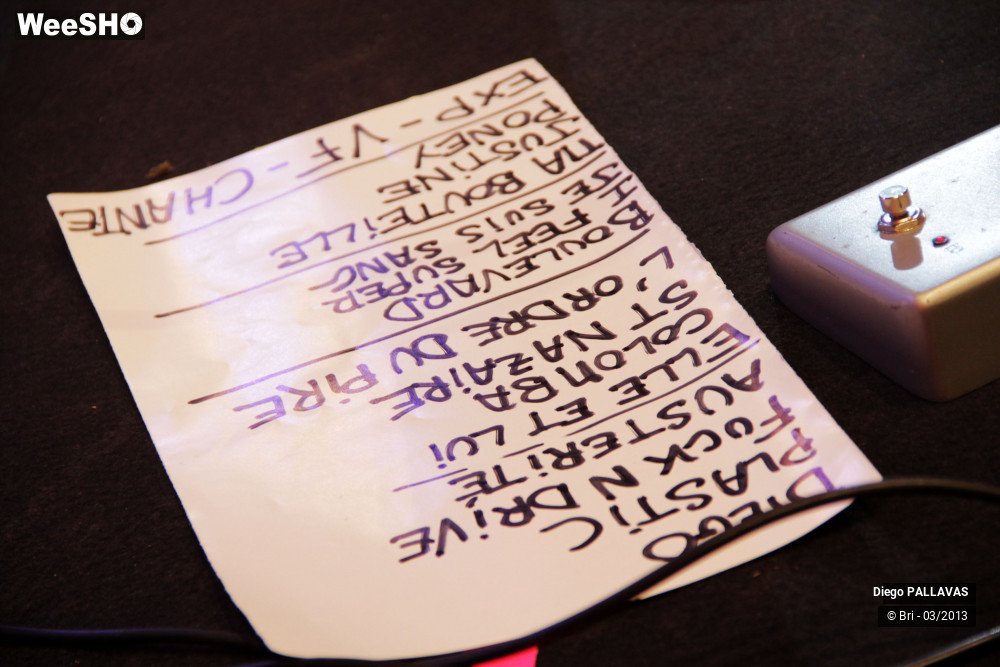 WeeSHO
DIEGO
PLASTIC
FUCK N DRIVE
AUSTERITÉ
ELLE ET LUI
COLOMBA
ST NAZAIRE
L'ORDRE DU PIRE
BOULEVARD
SHE FEELS SUPER
JE SUIS SANG
MA BOUTEILLE
JUSTINE
PONEY
EXP - VF - CHANTE
Diego PALLAVAS
© Bri - 03/2013